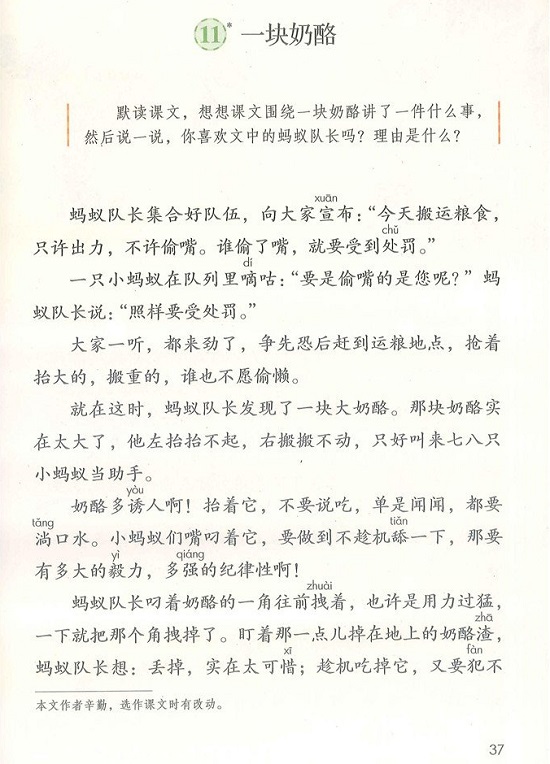 11* 一块奶酪
默读课文，想想课文围绕一块奶酪讲了一件什么事，
然后说一说，你喜欢文中的蚂蚁队长吗？理由是什么？
xuān
蚂蚁队长集合好队伍，向大家宣布：“今天搬运粮食，
chǔ
只许出力，不许偷嘴。谁偷了嘴，就要受到处罚。”
dí
一只小蚂蚁在队列里嘀咕：“要是偷嘴的是您呢？” 蚂
蚁队长说：“照样要受处罚。”
大家一听，都来劲了，争先恐后赶到运粮地点，抢着
抬大的，搬重的，谁也不愿偷懒。
就在这时，蚂蚁队长发现了一块大奶酪。那块奶酪实
在太大了，他左抬抬不起，右搬搬不动，只好叫来七八只
小蚂蚁当助手。
yòu
奶酪多诱人啊！抬着它，不要说吃，单是闻闻，都要
tǎng tiǎn
淌口水。小蚂蚁们嘴叼着它，要做到不趁机舔一下，那要
yì qiáng
有多大的毅力，多强的纪律性啊！
zhuài
蚂蚁队长叼着奶酪的一角往前拽着，也许是用力过猛，
zhā
一下就把那个角拽掉了。盯着那一点儿掉在地上的奶酪渣，
xī fàn
蚂蚁队长想：丢掉，实在太可惜；趁机吃掉它，又要犯不
本文作者辛勤，选作课文时有改动。
37